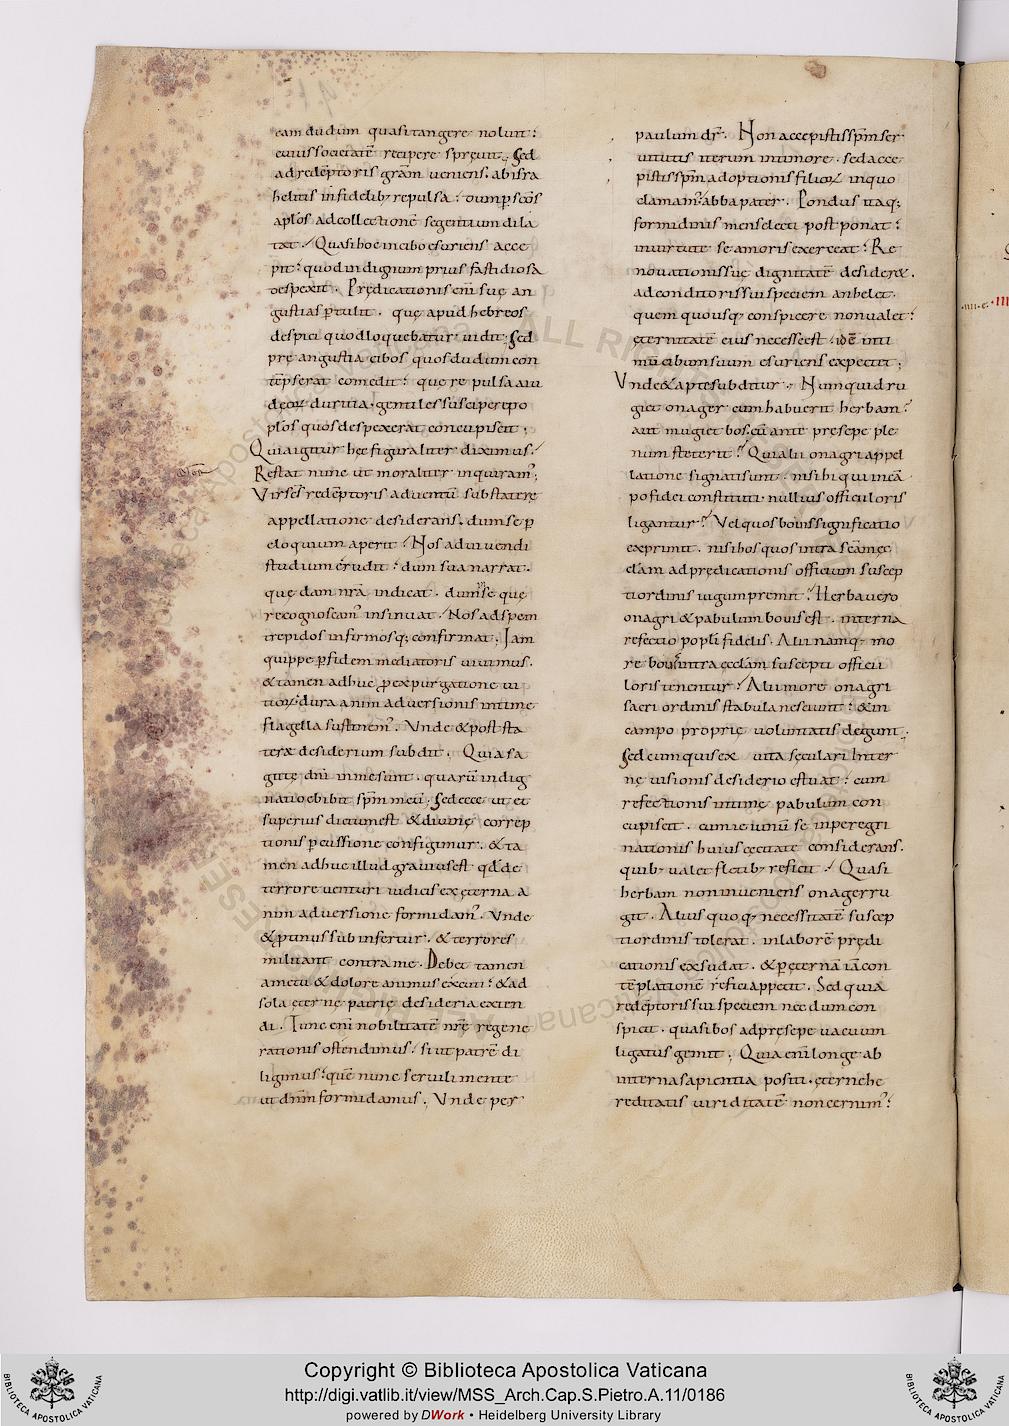 eam dudum quasi tangere noluit:
cuius societatē recipere spreuit; Sed
ad redēptoris grām ueniens. ab isra
helitis infidelib; repulsa: dum p scōs
aplōs ad collectionē se gentium dila
tat./ Quasi hoc in cibo esuriens acce
pit: quod indignum prius fastidiosa
despexit. Prędicationis enī suę an
gustias ptulit. quę apud hebreos
despici quod loquebatur uidit; Sed
prę angustia cibos quos dudum con
tēpserat comedit: quę repulsa a iu
dęoꝝ duritia. gentiles suscipere po
plōs quos despexerat concupiscit;
Quia igitur hęc figuraliter diximus./
Restat nunc ut moraliter inquiram';
Vir scs redēptoris aduentū sub statere
appellatione desiderans. dum se p
eloquium aperit./ Nos ad uiuendi
studium erudit: dum sua narrat.
quędam nrā indicat. dum se quę
recognoscam' insinuat./ Nos ad spem
trepidos infirmosq; confirmat. Iam
quippe p fidem mediatoris uiuimus.
& tamen adhuc p expurgatione ui
tioꝝ. dura animaduersionis intimę
flagella sustinem'. Vnde & post sta
terę desiderium subdit. Quia sa
gittę dn̄i in me sunt. quarū indig
natio ebibit spm̄ meū. Sed ecce ut et
superius dictum est & diuinę correp
tionis pcussione configimur. & ta
men adhuc illud grauius est. qd̄ de
terrore uenturi iudicis ex ęterna a
nimaduersione formidam'. Vnde
& ptinus subinfertur. & terrores
militant contra me. Debet tamen
a metu & dolore animus excuti: & ad
sola ęternę patrię desideria exten
di. Tunc enī nobilitatē nr̄ę regene
rationis ostendimus./ si ut patrē di
ligimus: quē nunc seruili mente
ut dnm̄ formidamus. Vnde per
paulum dr̄. Non accepistis spm̄ ser
uitutis iterum in timore. sed acce
pistis spm̄ adoptionis filioꝝ in quo
clamam'. abba pater. Pondus itaq;
formidinis mens electi postponat:
in uirtute se amoris exerceat: Re
nouationis suę dignitatē desider&.
ad conditoris sui speciem anhelet.
quem quousq; conspicere non ualet:
ęternitatē eius necesse est. idē inti
mū cibum suum esuriens expectet;
Vnde & apte subditur. Numquid ru
giet onager cum habuerit herbam?
aut mugiet bos. cū ante pręsepe ple
num steterit? Qui alii onagri appel
latione signati sunt. nisi hi qui in cā
po fidei constituti. nullius officii loris
ligantur? Vel quos bouis significatio
exprimit. nisi hos quos intra scam̄ ęc
clām ad prędicationis officium suscep
ti ordinis iugum premit? Herba uero
onagri & pabulum bouis est. interna
refectio popli fidelis. Alii namq; mo
re bouis intra ęcclām suscepti officii
loris tenentur./ Alii more onagri
sacri ordinis stabula nesciunt: & in
campo proprię uoluntatis degunt;
Sed cum quis ex uita sęculari inter
nę uisionis desiderio estuat: cum
refectionis intimę pabulum con
cupiscit. cum ieiunū se in peregri
nationis huius cęcitate considerans.
quib; ualet fletib; reficit./ Quasi
herbam non inueniens onager ru
git. Alius quoq; necessitatē suscep
ti ordinis tolerat. in laborē prędi
cationis exsudat. & p ęternā iā con
tēplationē refici appetit. Sed quia
redēptoris sui speciem necdum con
spicit. quasi bos ad pręsepe uacuum
ligatus gemit; Quia enī longe ab
interna sapientia positi. ęternę he
reditatis uiriditatē non cernim':
Copyright © Biblioteca Apostolica Vaticana
http://digi.vatlib.it/view/MSS_Arch.Cap.S.Pietro.A.11/0186
powered by DWork • Heidelberg University Library
BIBLIOTECA APOSTOLICA VATICANA
BIBLIOTECA APOSTOLICA VATICANA